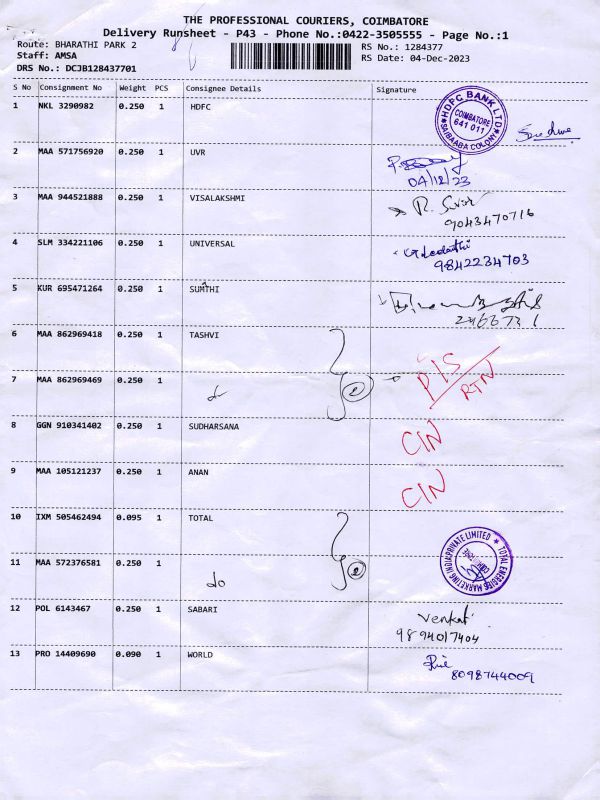 THE PROFESSIONAL COURIERS, COIMBATORE
Delivery Runsheet - P43 - Phone No.:0422-3505555 - Page No.:1
Route: BHARATHI PARK 2 8 RS No.: 1284377
Staff: AMSA RS Date: 04-Dec-2023
DRS No.: DCJB128437701
S No Consignment No Weight PCS Consignee Details Signature
1 NKL 3290982 0.250 1 HDFC
HDFC BANK LTD
COIMBATORE
641 011
SAIBAABA COLONY
2 MAA 571756920 0.250 1 UVR
04/12/23
3 MAA 944521888 0.250 1 VISALAKSHMI
9043470716
4 SLM 334221106 0.250 1 UNIVERSAL
9842234703
5 KUR 695471264 0.250 1 SUMITHI
2466731
6 MAA 862969418 0.250 1 TASHVI
P/S
RTN
7 MAA 862969469 0.250 1 do 2
8 GGN 910341402 0.250 1 SUDHARSANA CIN
9 MAA 105121237 0.250 1 ANAN CIN
10 IXM 505462494 0.095 1 TOTAL
TOTAL ENERGIES MARKETING INDIA PRIVATE LIMITED
11 MAA 572376581 0.250 1 do 2
12 POL 6143467 0.250 1 SABARI Venkat
9894017404
13 PRO 14409690 0.090 1 WORLD
8098744009